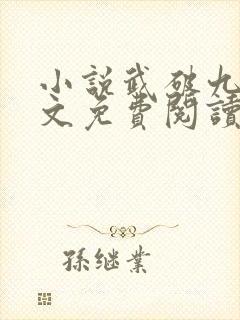 小说武破九
文免費閱讀
孫继業